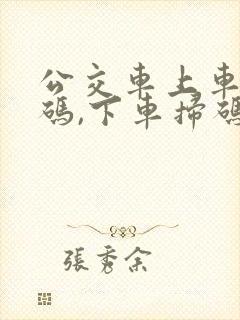 公交車上車
碼,下車掃碼
張秀余